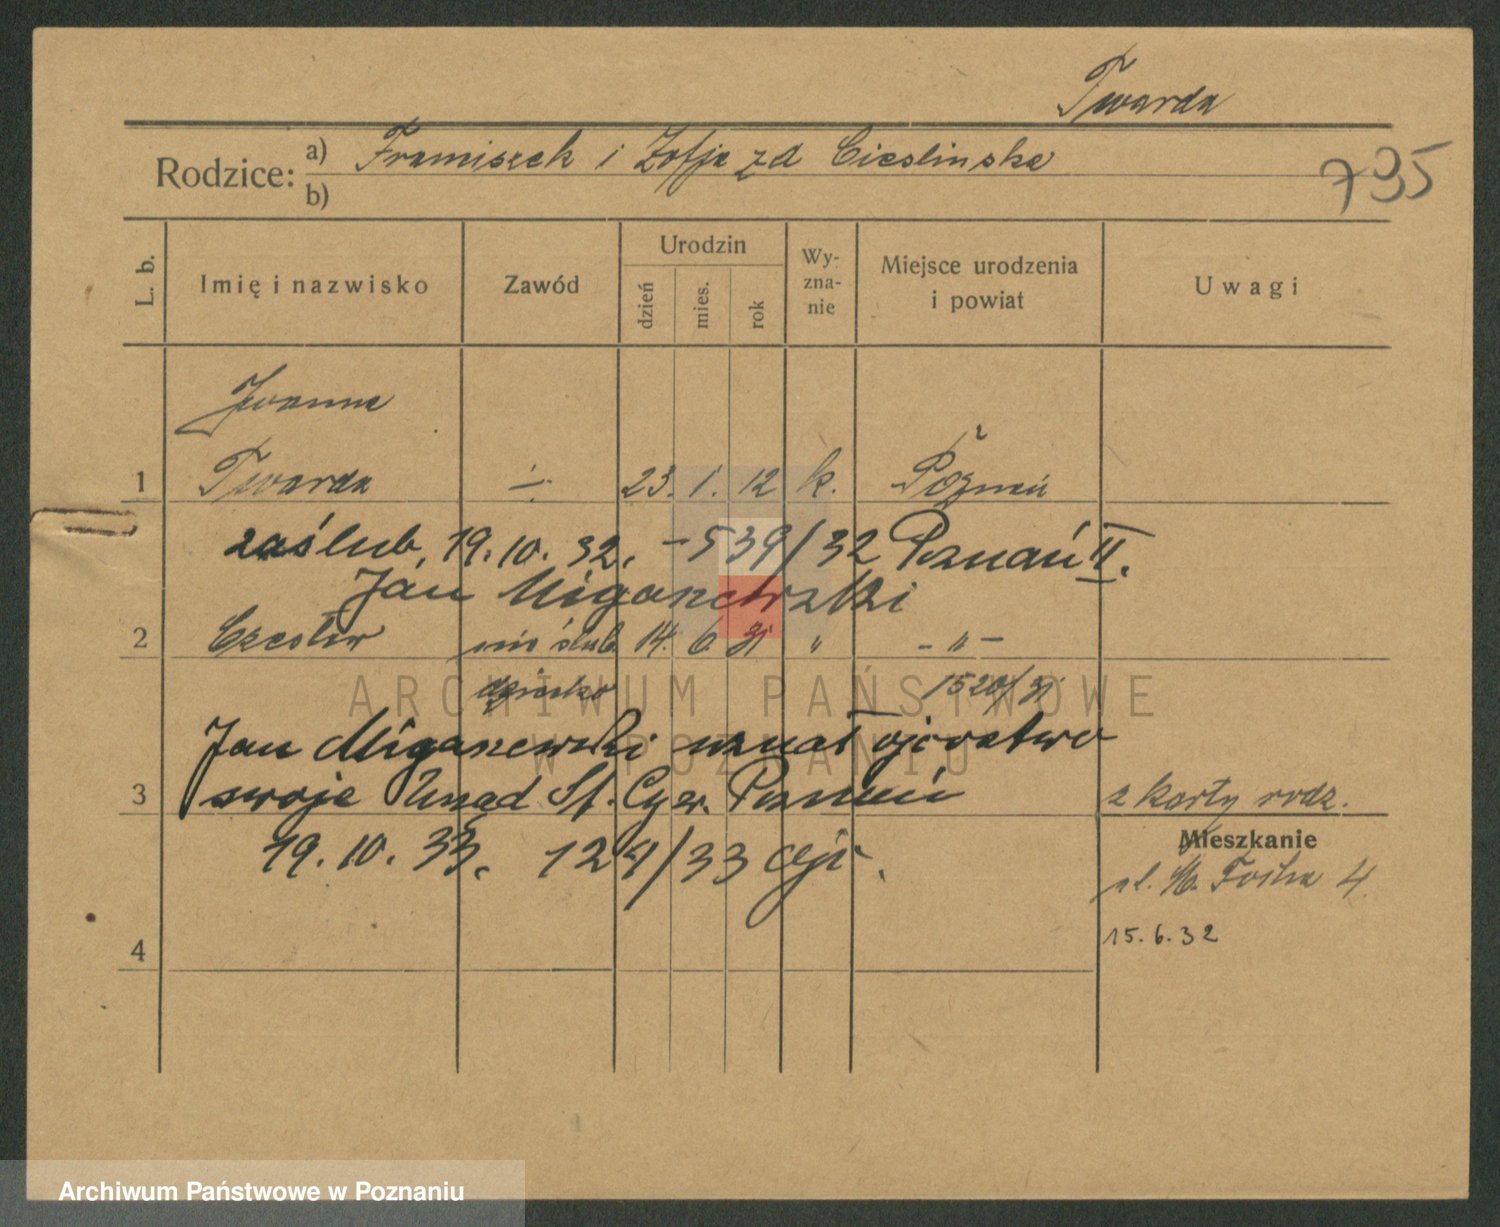 Twarda
Rodzice: a) Franciszek i Zofja zd Cieslinska
b)
795
L. b. Imię i nazwisko Zawód Urodzin dzień mies. rok Wy-zna-nie Miejsce urodzenia i powiat Uwagi
Joanna
1 Twarda -"- 23. 1. 12 k. Poznań
zaślub. 19.10.32. - 539/32 Poznań II.
Jan
2 Czesław nie ślub. 14. 6. 31 " - " -
dziecko 1520/31
Jan Migaszewski uznał ojcostwo
3 swoje Urząd St. Cyw. Poznań z karty rodz.
19.10.33. 124/33 ojc. Mieszkanie
4
15.6.32
ARCHIWUM PAŃSTWOWE
W POZNANIU
Archiwum Państwowe w Poznaniu